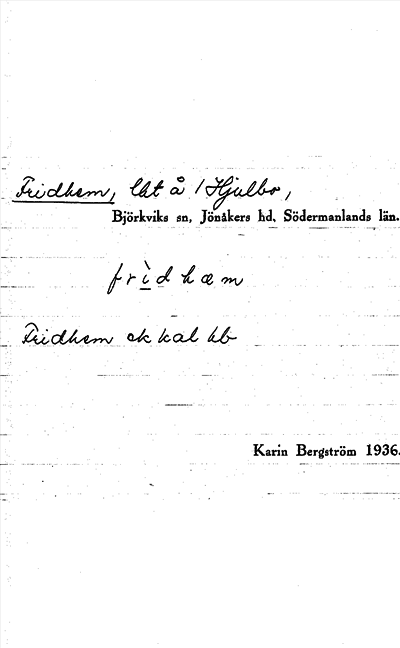 Fridhem, lht å 1 Hjulbo,
Björkviks sn, Jönåkers hd, Södermanlands län.
frìdhæm
Fridhem ek kal hb
Karin Bergström 1936.